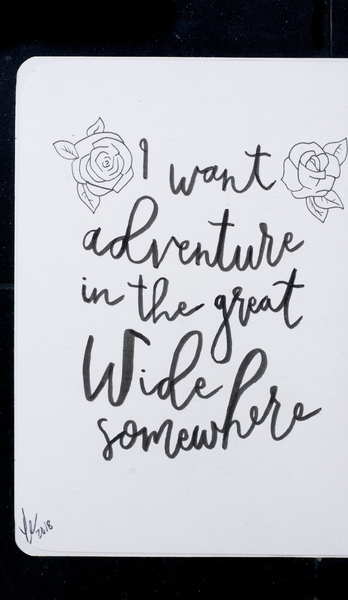 I want
adventure
in the great
Wide
somewhere
2018